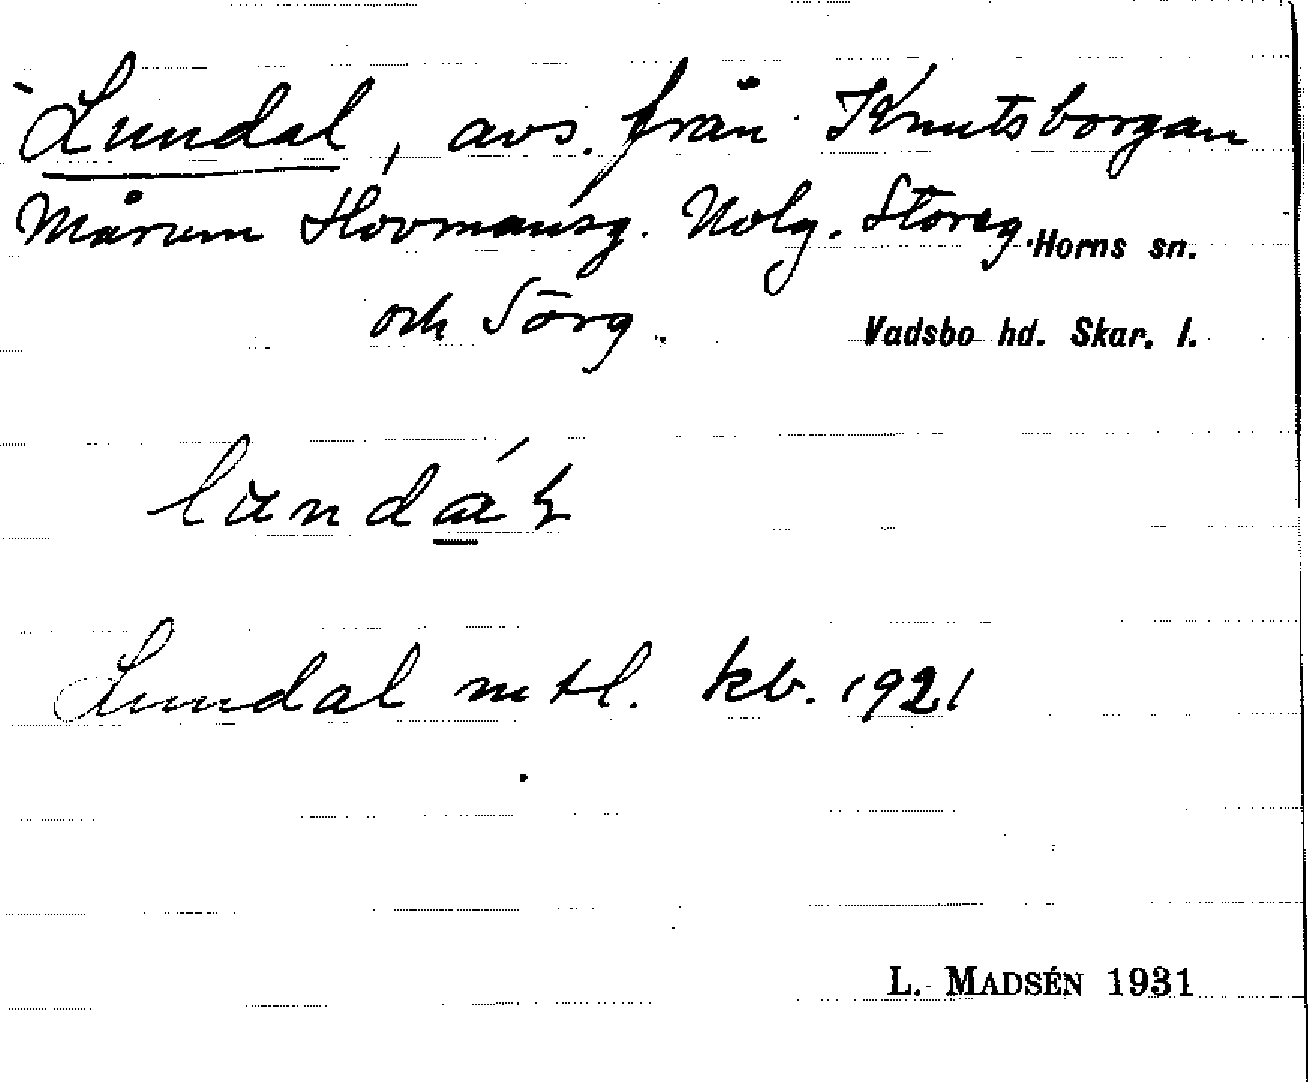 Lundal, avs. från Knutsborgan
Mårum Hovmansg. Nolg. Storeg. Horns sn.
och Sörg. Vadsbo hd. Skar. l.
Lundal mtl. kb. 1921
L. MADSÉN 1931